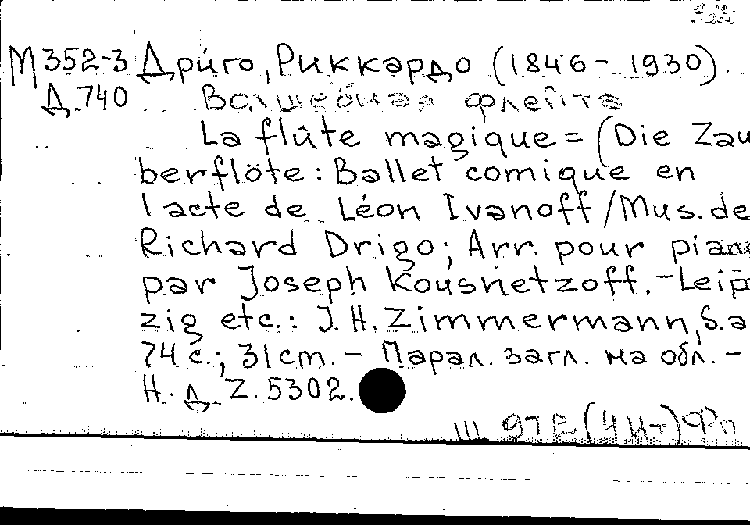 М352-3 Дриго, Риккардо (1846-1930).
Д.740 Волшебная флейта
La flûte magique = (Die Zau
berflöte: Ballet comique en
1 acte de Léon Ivanoff / Mus. de
Richard Drigo; Arr. pour piano
par Joseph Kousnetzoff. - Leip
zig etc.: J. H. Zimmermann, S. a
74 с.; 31 cm. - Парал. загл. на обл. -
Н. д. Z. 5302.